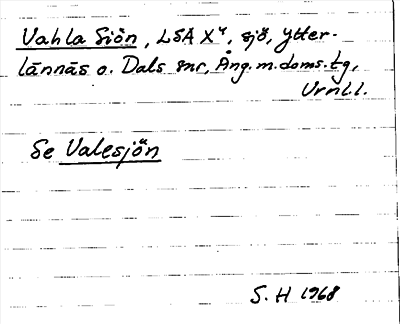 Vahla Siön, LSA X⁴, sjö, Ytter-
lännäs o. Dals snr, Ång. m. doms. tg,
Vrnl l.
Se Valesjön
S. H 1968